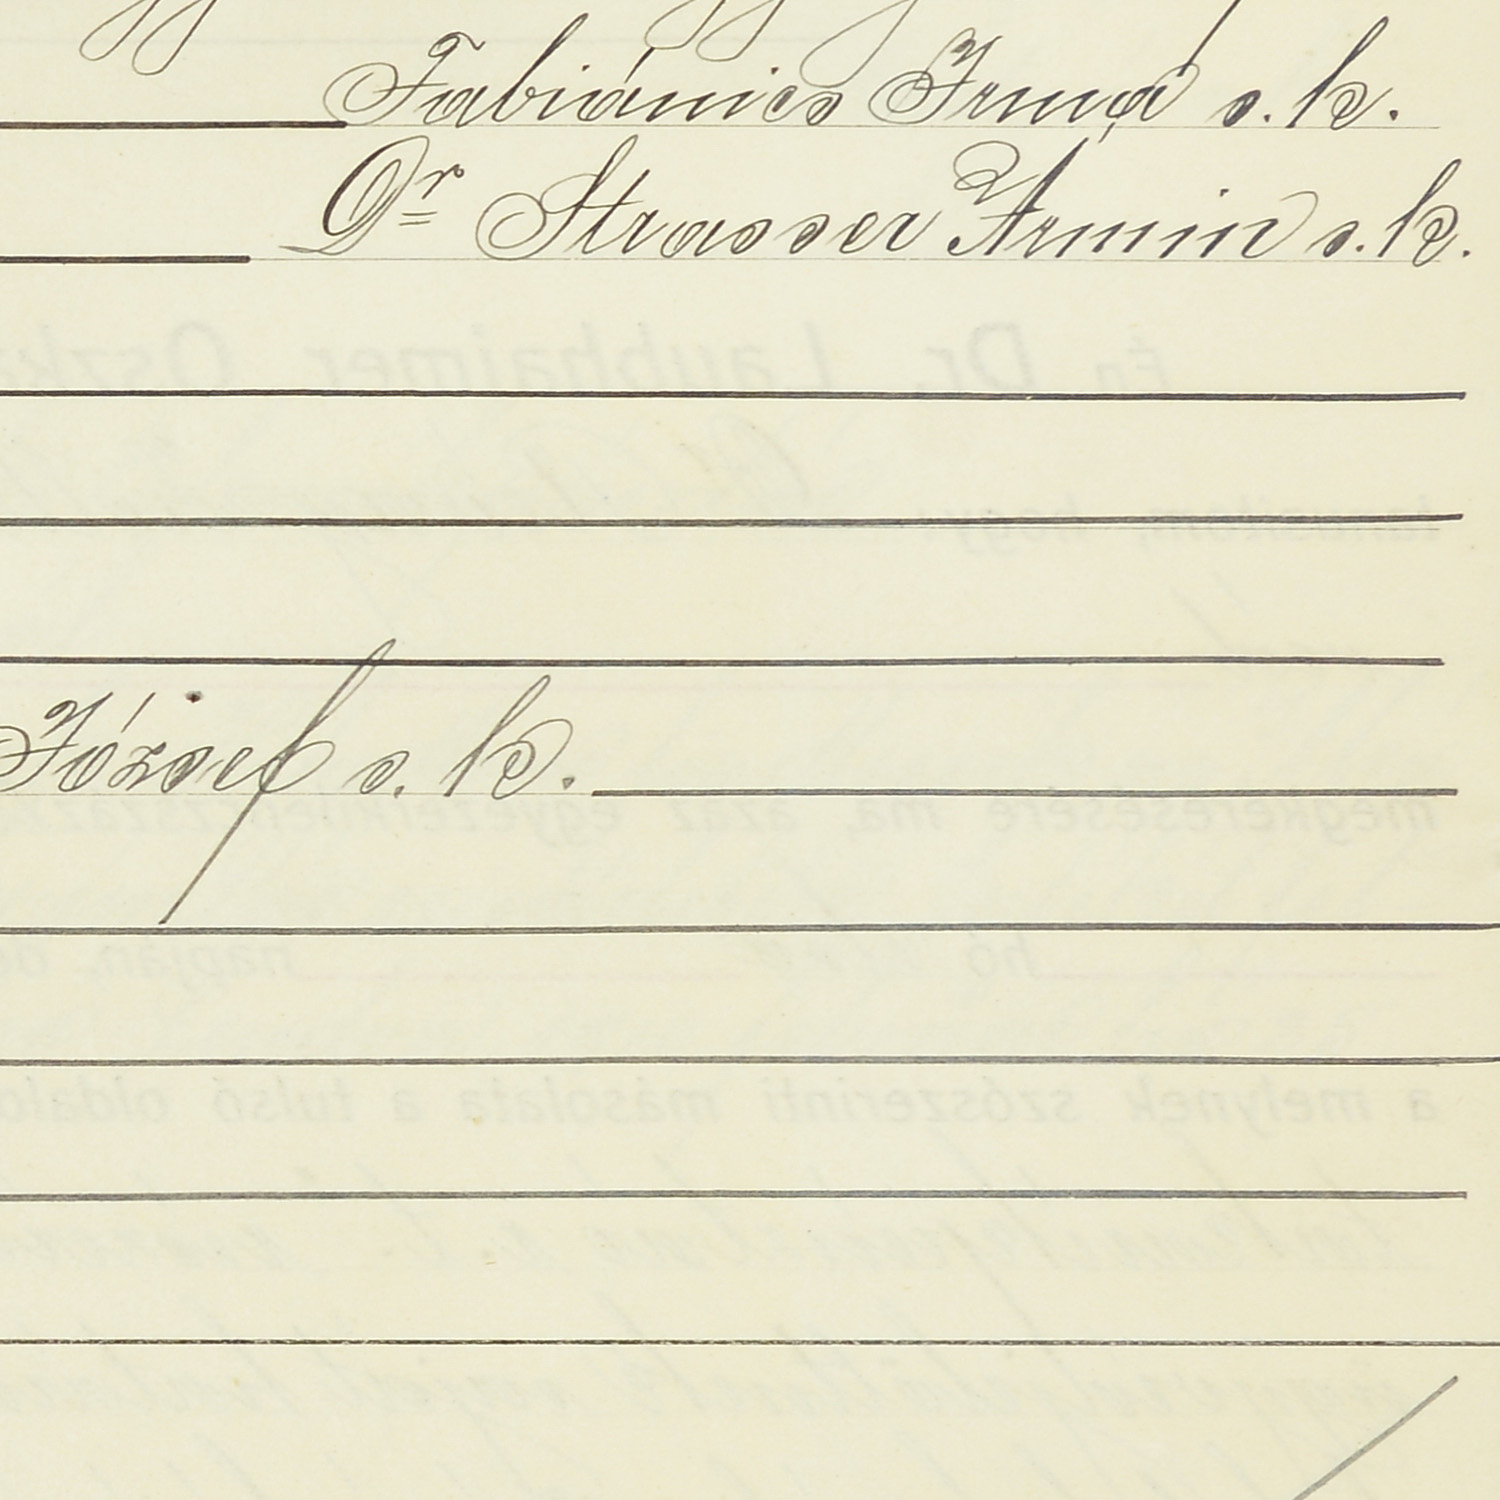 Fabiánics Irma s. k.
Dr Strasser Ármin s. k.
József s. k.